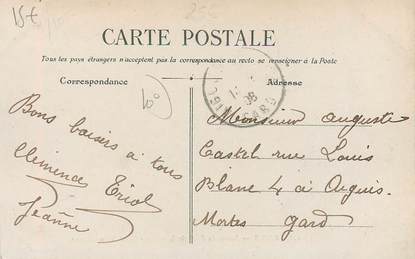 15€
CARTE POSTALE
Tous les pays étrangers n'acceptent pas la correspondance au recto se renseigner à la Poste
Correspondance
Adresse
Bons baisers à tous
Clémence Triol
Jeanne
Monsieur Auguste
Castel rue Louis
Blanc 4 à Aigues.
Mortes Gard